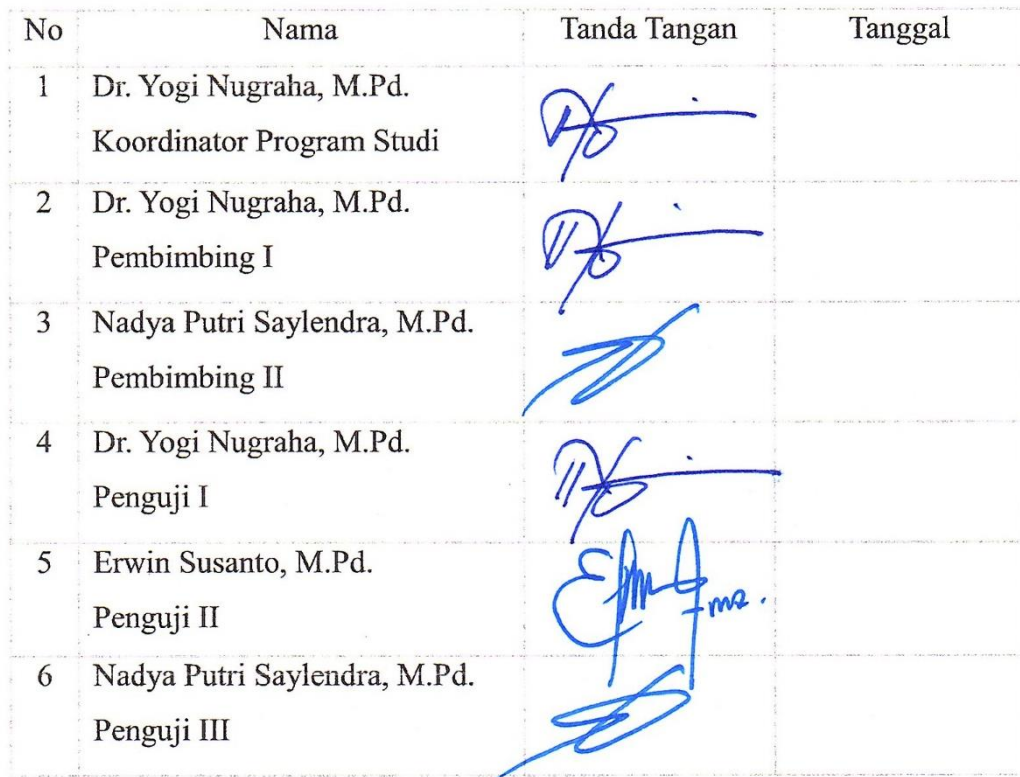 No Nama Tanda Tangan Tanggal
1 Dr. Yogi Nugraha, M.Pd.
Koordinator Program Studi
2 Dr. Yogi Nugraha, M.Pd.
Pembimbing I
3 Nadya Putri Saylendra, M.Pd.
Pembimbing II
4 Dr. Yogi Nugraha, M.Pd.
Penguji I
5 Erwin Susanto, M.Pd.
Penguji II
6 Nadya Putri Saylendra, M.Pd.
Penguji III